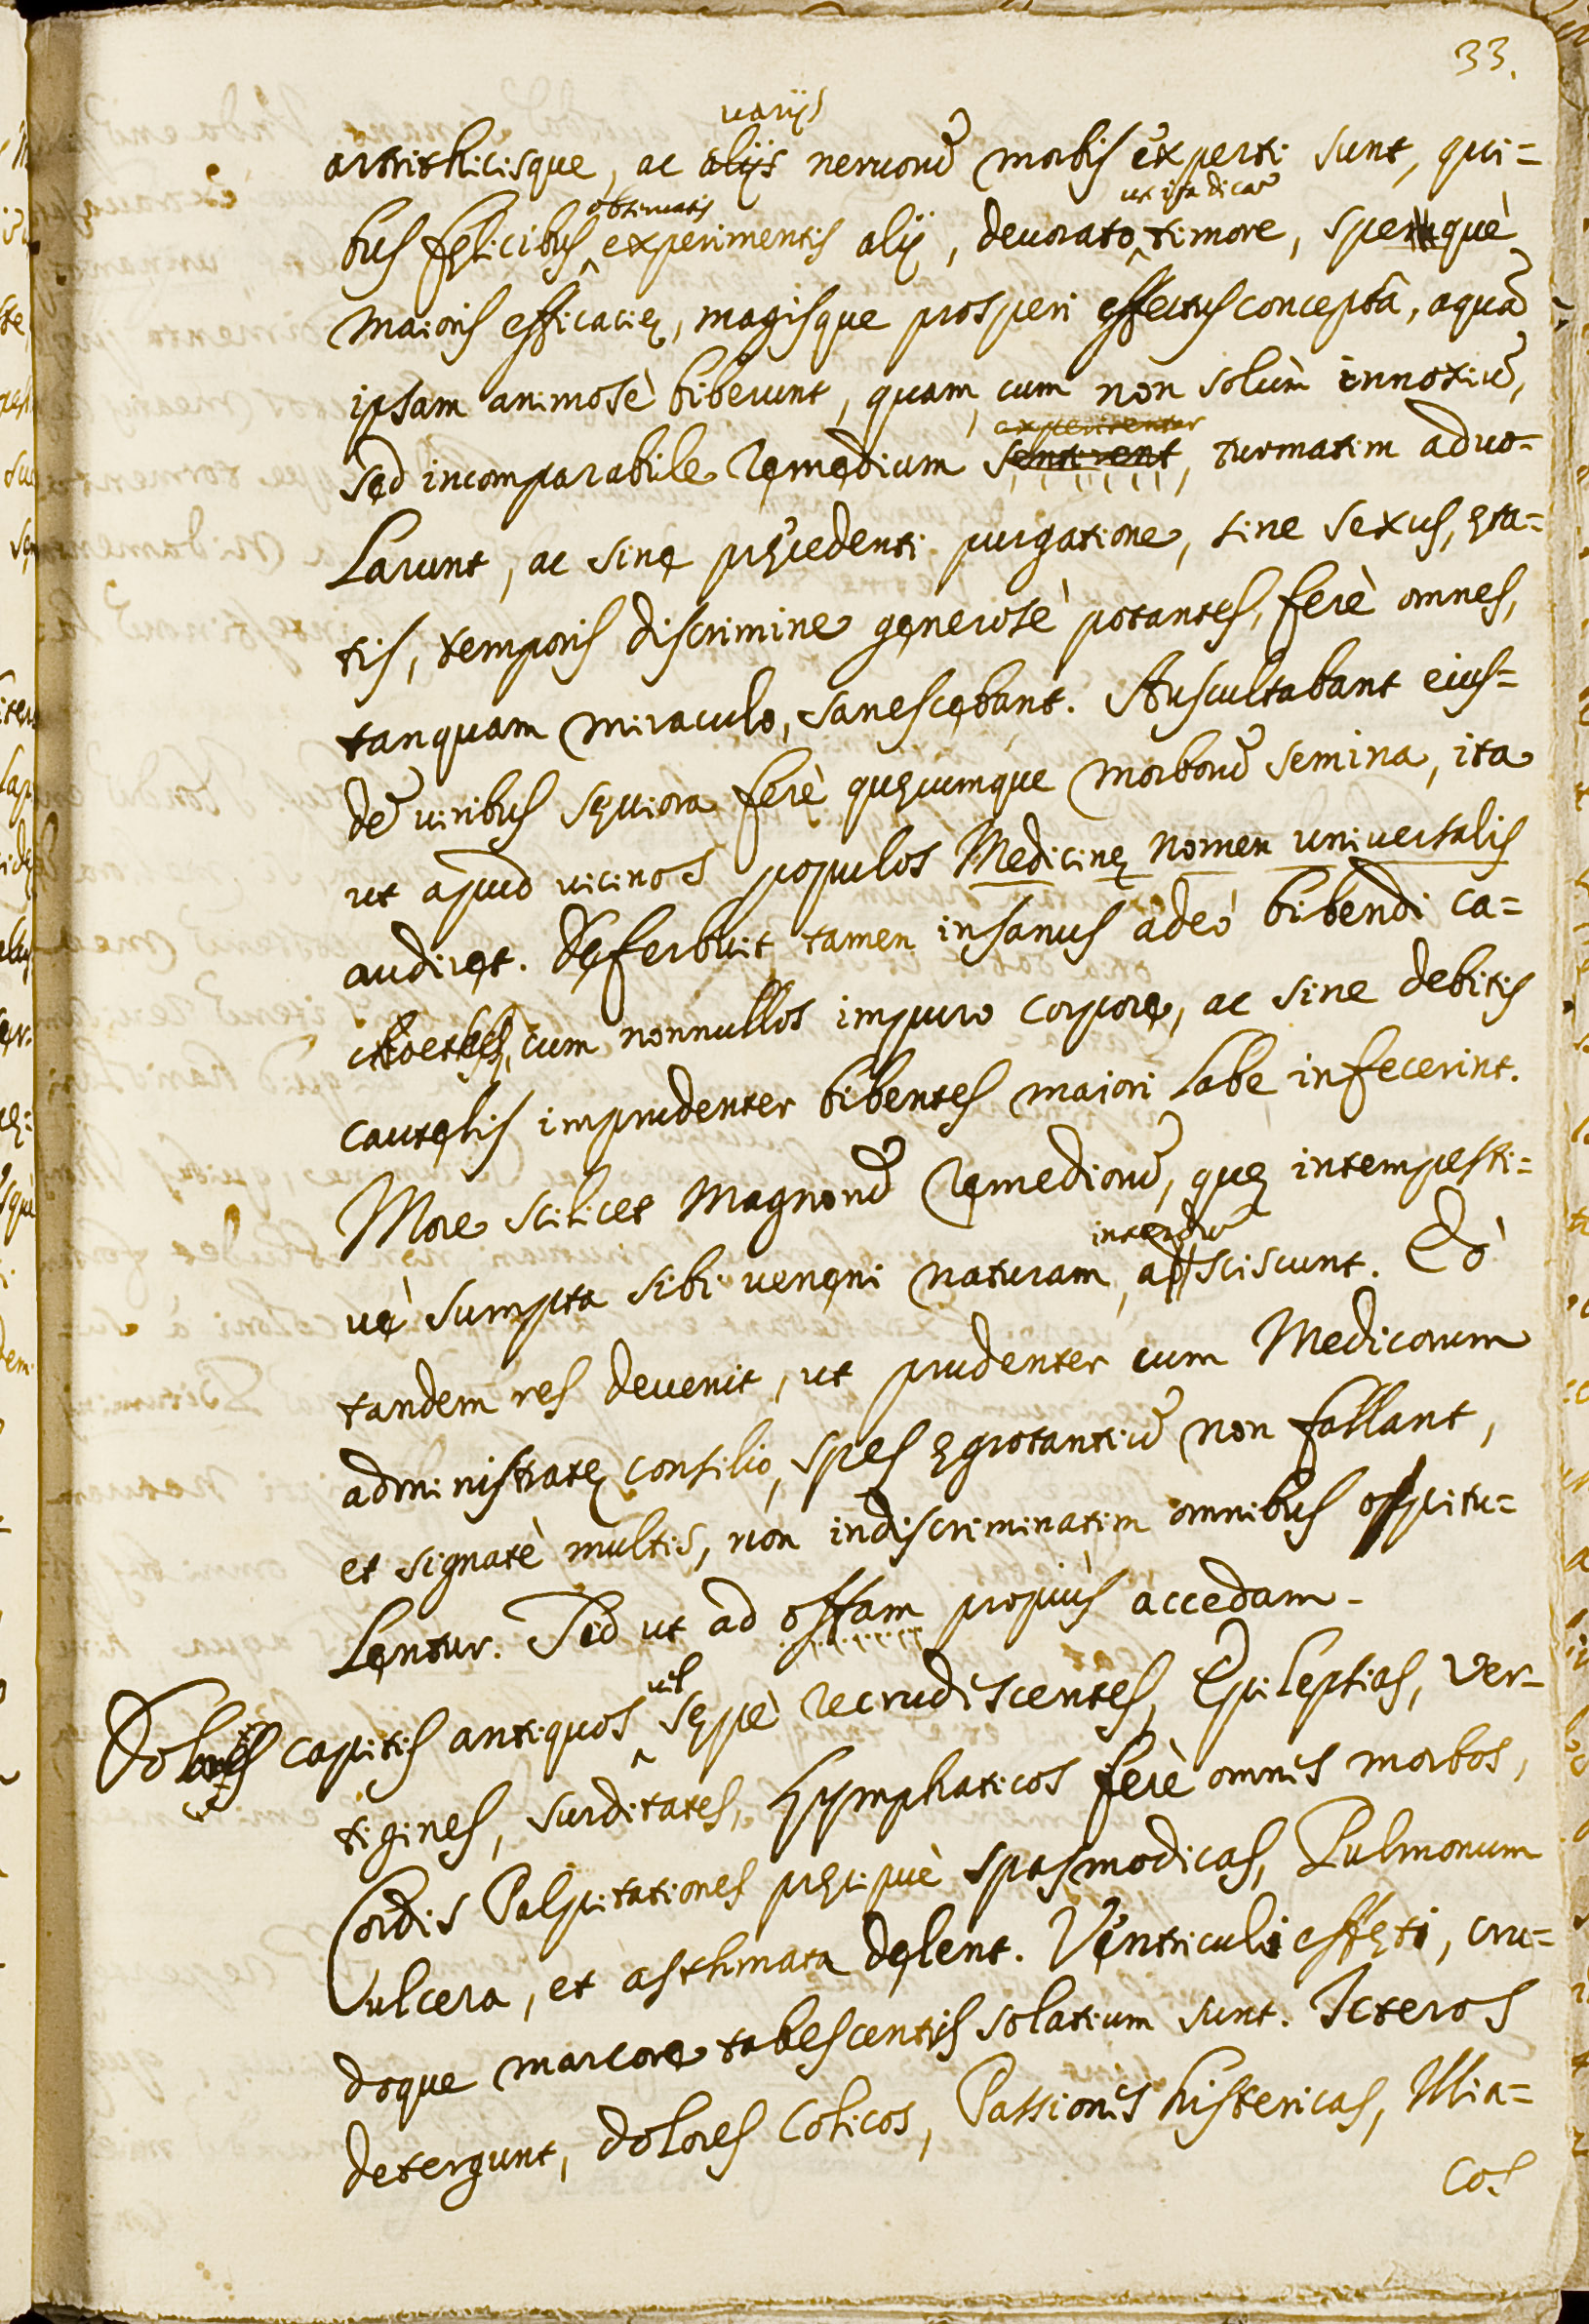 33.
varijs
artrithicisque, ac alijs neruorũ morbis experti sunt, qui=
obseruatis ut ita dicã
bus fęlicibus ^ experimentis alij, deuorato ^ timore, speque
maioris efficacię, magisque prosperi effectus conceptâ, aquã
ipsam animosè biberunt, quam, cum non solùm innoxiũ,
experirentur
sęd incomparabile Remędium sentirent, turmatim aduo=
Larunt, ac sine pręcedenti purgatione, sine sexus, ęta=
tis, temporis discrimine generosè potantes, ferè omnes,
tanquam miraculo, sanescębant. Auscultabant eius=
dẽ viribus sęviora ferè quęcumque morborũ semina, ita
ut apud vicinos populos Medicinę nomen universalis
audiręt. Dęferbuit tamen insanus adeò bibendi ca=
cum nonnullos impuro corpore, ac sine debitis
cautęlis imprudenter bibentes maiori labe infecerint.
More scilicet Magnorũ Remediorũ, quę intempesti=
interdũ
vè sumpta sibi venęni naturam, adsciscunt. Eò
tandem res devenit, ut prudenter cum Medicorum
administratę consilio, spes ęgrotantiũ non fallant,
et signatè multis, non indiscriminatim omnibus opitu=
Lentur. Sed ut ad offam propiùs accedam.
vel
Dolores capitis antiquos ^ sępè recrudiscentes, Epilepsias, ver=
tigines, surditates, Lymphaticos ferè omnis morbos,
Cordis Palpitationes pręcipuè spasmodicas, Pulmonum
ulcera, et asthmata dęlent. Ventriculi effęti, cru=
doque marcore tabescentis solatium sunt. Icteros
detergunt, dolores Colicos, Passionis histericas, Illia=
cos